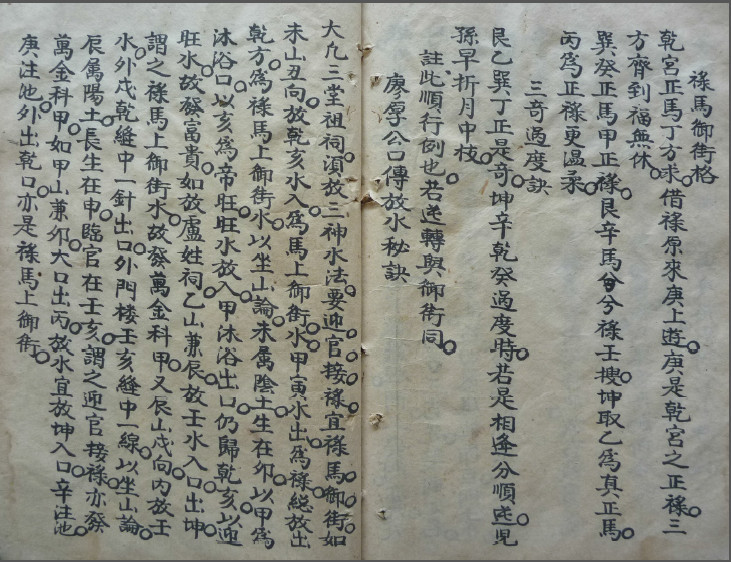 祿馬御街格
乾宮正馬丁方求。借祿原來庚上遊。庚是乾宮之正祿。三
方齊到福無休。
巽癸正馬甲正祿。艮辛馬兮祿壬搜。坤取乙為真正馬。
丙為正祿更溫柔。
三奇過度訣
艮乙巽丁正是奇。坤辛乾癸過度時。若是相逢分順逆。兒
孫早折月中枝。
註此順行例也。若逆轉與御街同。
廖厚公口傳放水秘訣
大凡三堂祖祠。須放三神水法。要迎官接祿。宜祿馬御街。如
未山丑向。放乾亥水入。為馬上御街。水甲寅水出。為祿。總放出
乾方。為祿馬上御街水。以坐山論。未屬陰土。生在卯。以甲為
沐浴。口以亥為帝旺。旺水放入。甲沐浴出口。仍歸乾亥。以迎
旺水。故發富貴。如放盧姓祠。乙山兼辰。放壬水入口。出坤。
謂之祿馬上御街水。故發萬金科甲。又辰山戌向。內放壬
水。外戌乾縫中一針出口。外門楼壬亥縫中一線。以坐山論。
辰屬陽土。長生在申。臨官在壬亥。謂之迎官接祿。亦發
萬金科甲。如甲山兼卯。大口出丙。放水宜放坤入口。辛注池。
庚注池。外出乾口。亦是祿馬上御街。